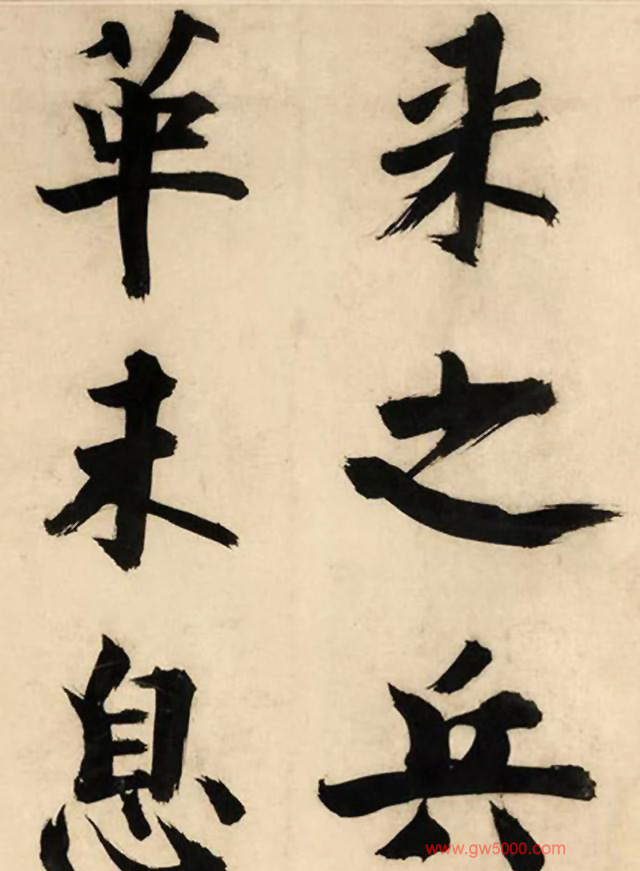 来之兵
革未息
www.gw5000.com